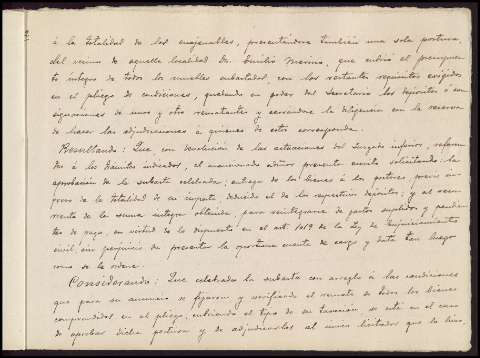 á la totalidad de los enajenables, presentándose también una sola postura,
del vecino de aquella localidad Dn. Emilio que cubrió el presupues-
to íntegro de todos los muebles subastados, con los restantes requisitos exigidos
en el pliego de condiciones, quedando en poder del Secretario los depósitos ó con-
signaciones de unos y otro rematantes y cerrándose la diligencia con la reserva
de hacer las adjudicaciones á quienes de estos corresponda.
Resultando: Que, con devolución de las actuaciones del Juzgado inferior, referen-
tes á los trámites indicados, el mencionado presentó escrito solicitando: la
aprobación de la subasta celebrada; entrega de los bienes á los postores, previo in-
greso de la totalidad de su importe, deducido el de los respectivos depósitos; y al
de la suma íntegra obtenida, para reintegrarse de gastos suplidos y pendien-
tes de pago, en virtud de lo dispuesto en el art. 1019 de la Ley de Enjuiciamiento
civil, sin perjuicio de presentar la oportuna cuenta de cargo y data tan luego
como se le ordene.
Considerando: Que celebrada la subasta con arreglo á las condiciones
que para su anuncio se fijaron y verificado el remate de todos los bienes
comprendidos en el pliego, cubriendo el tipo de su tasación, se está en el caso
de aprobar dicha postura y de adjudicarlos al único licitador que la hizo,